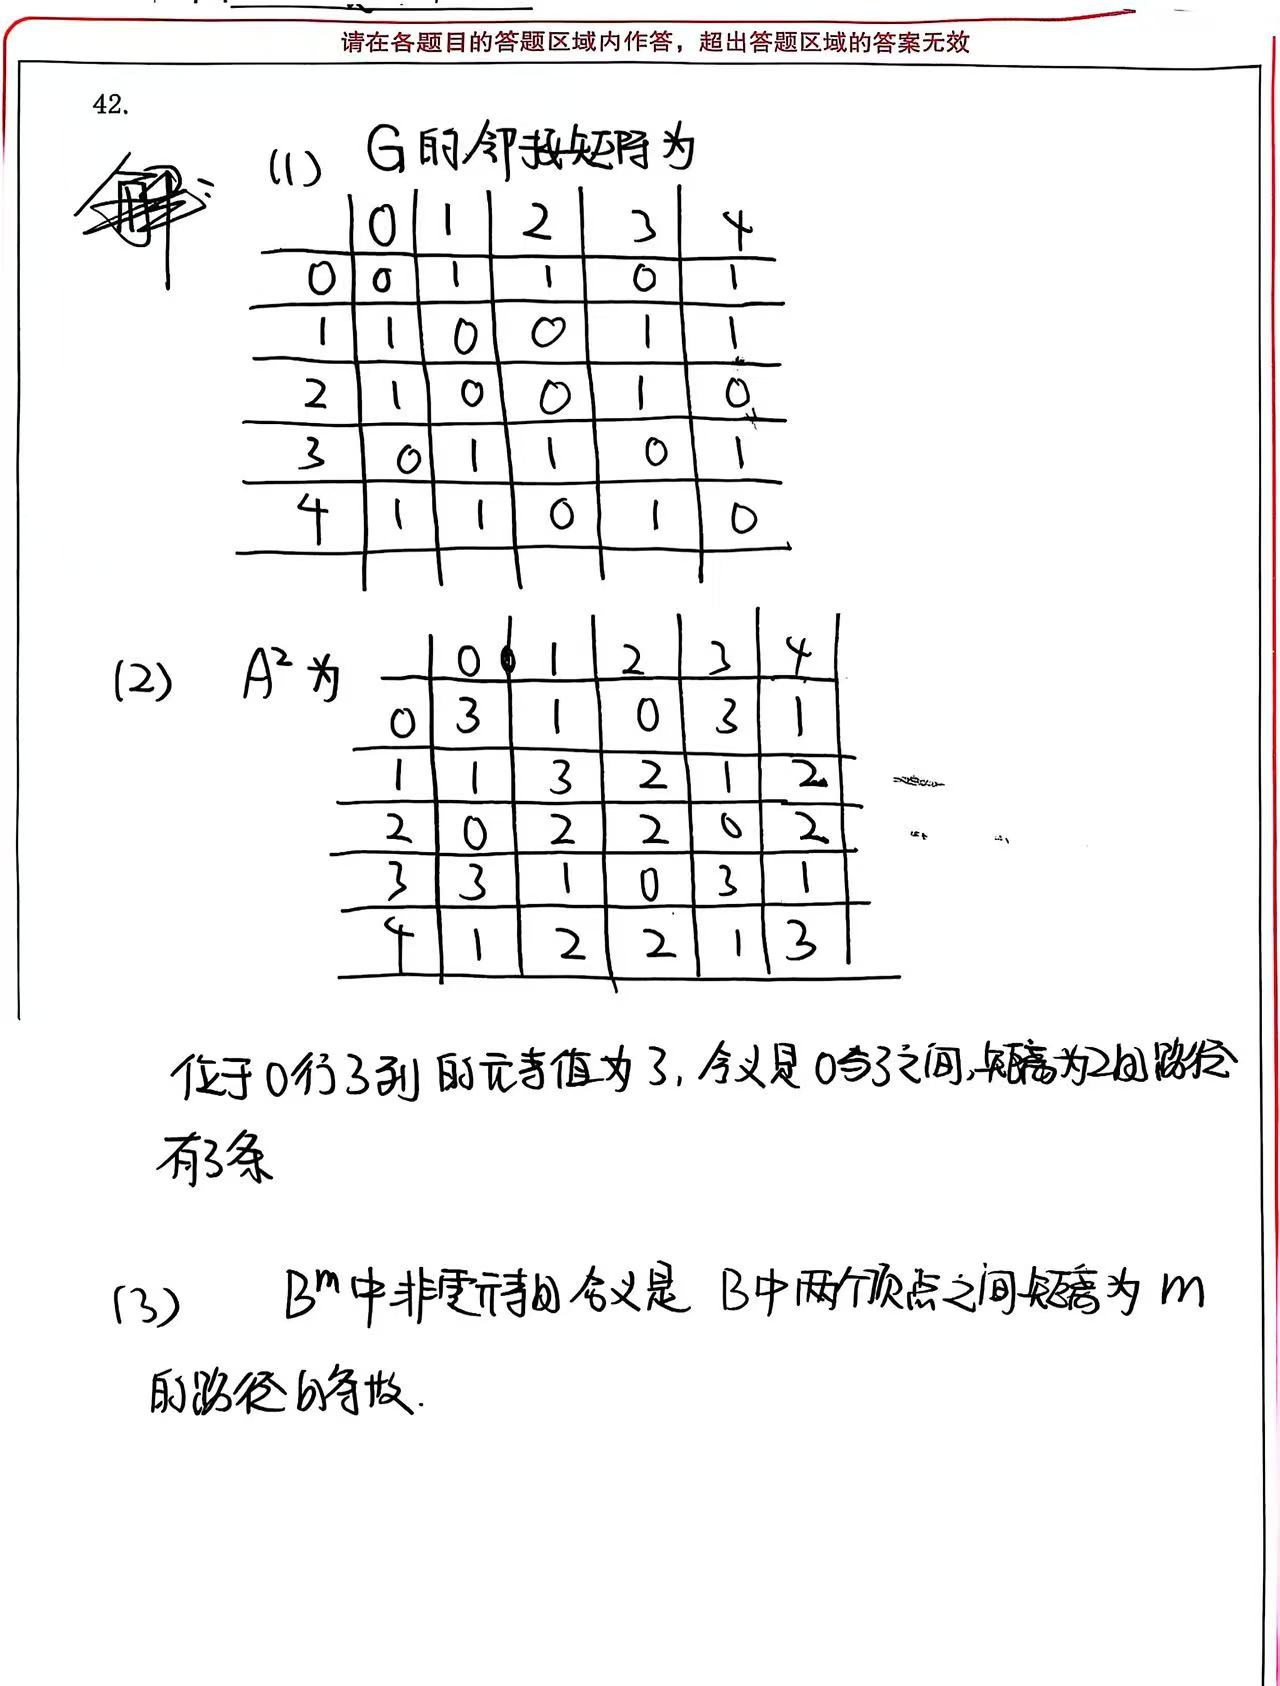 请在各题目的答题区域内作答，超出答题区域的答案无效
42.
(1) G的邻接矩阵为
0 1 2 3 4
0 0 1 1 0 1
1 1 0 0 1 1
2 1 0 0 1 0
3 0 1 1 0 1
4 1 1 0 1 0
(2) A²为
0 1 2 3 4
0 3 1 0 3 1
1 1 3 2 1 2
2 0 2 2 0 2
3 3 1 0 3 1
4 1 2 2 1 3
位于0行3列的元素值为3，含义是0与3之间，距离为2的路径
有3条
(3) Bᵐ中非零元素的含义是 B中两个顶点之间距离为m
的路径的条数.